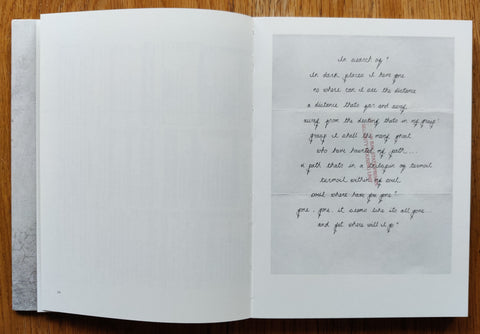 In search of"
In dark places I have gone
no where can it see the distance
a distance thats far and away
away from the destiny thats in my grasp!
grasp it shall the many ghoul
who have haunted my path....
a path thats in a of turmoil
turmoil within my soul
soul where have you gone"
gone, gone, it seems like its all gone...
and yet where will it go"